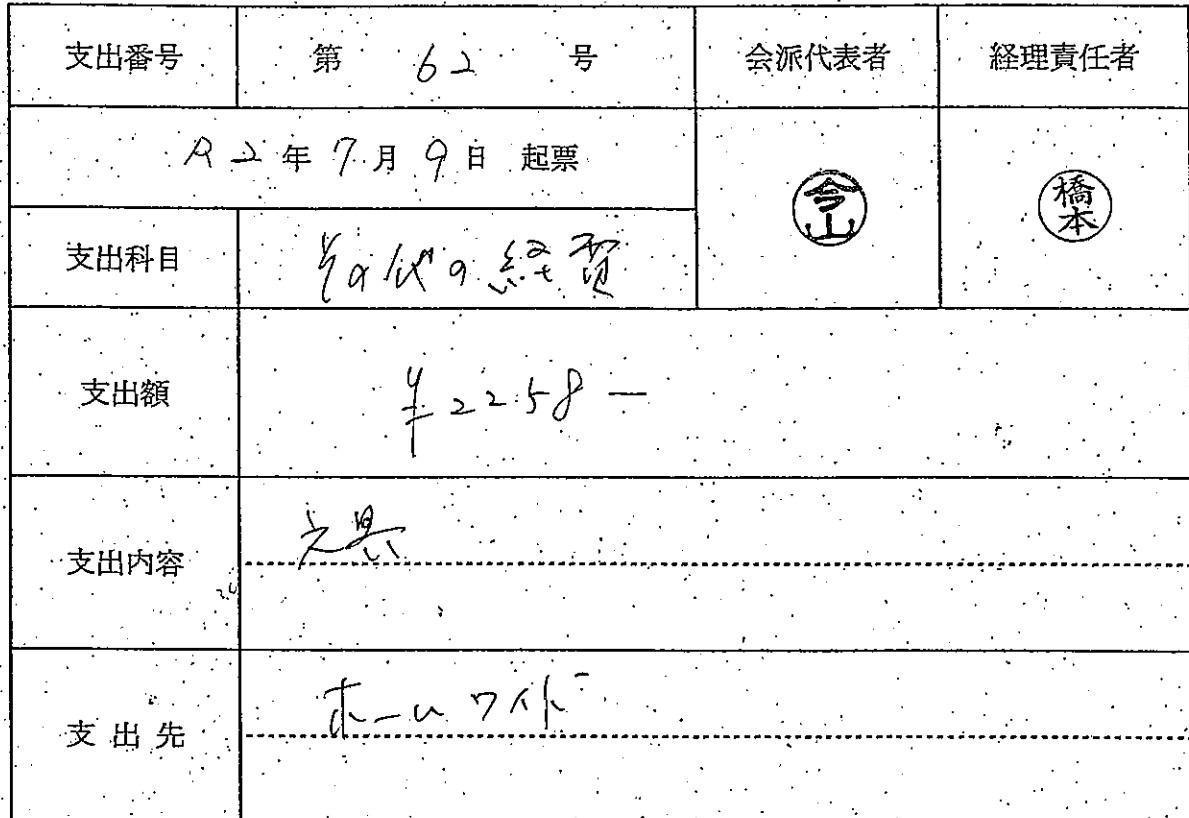 支出番号 第 62 号 会派代表者 経理責任者
R2年7月9日 起票
今山 橋本
支出科目 その他の経費
支出額 ¥2258－
支出内容 文具
支出先 ホームワイド